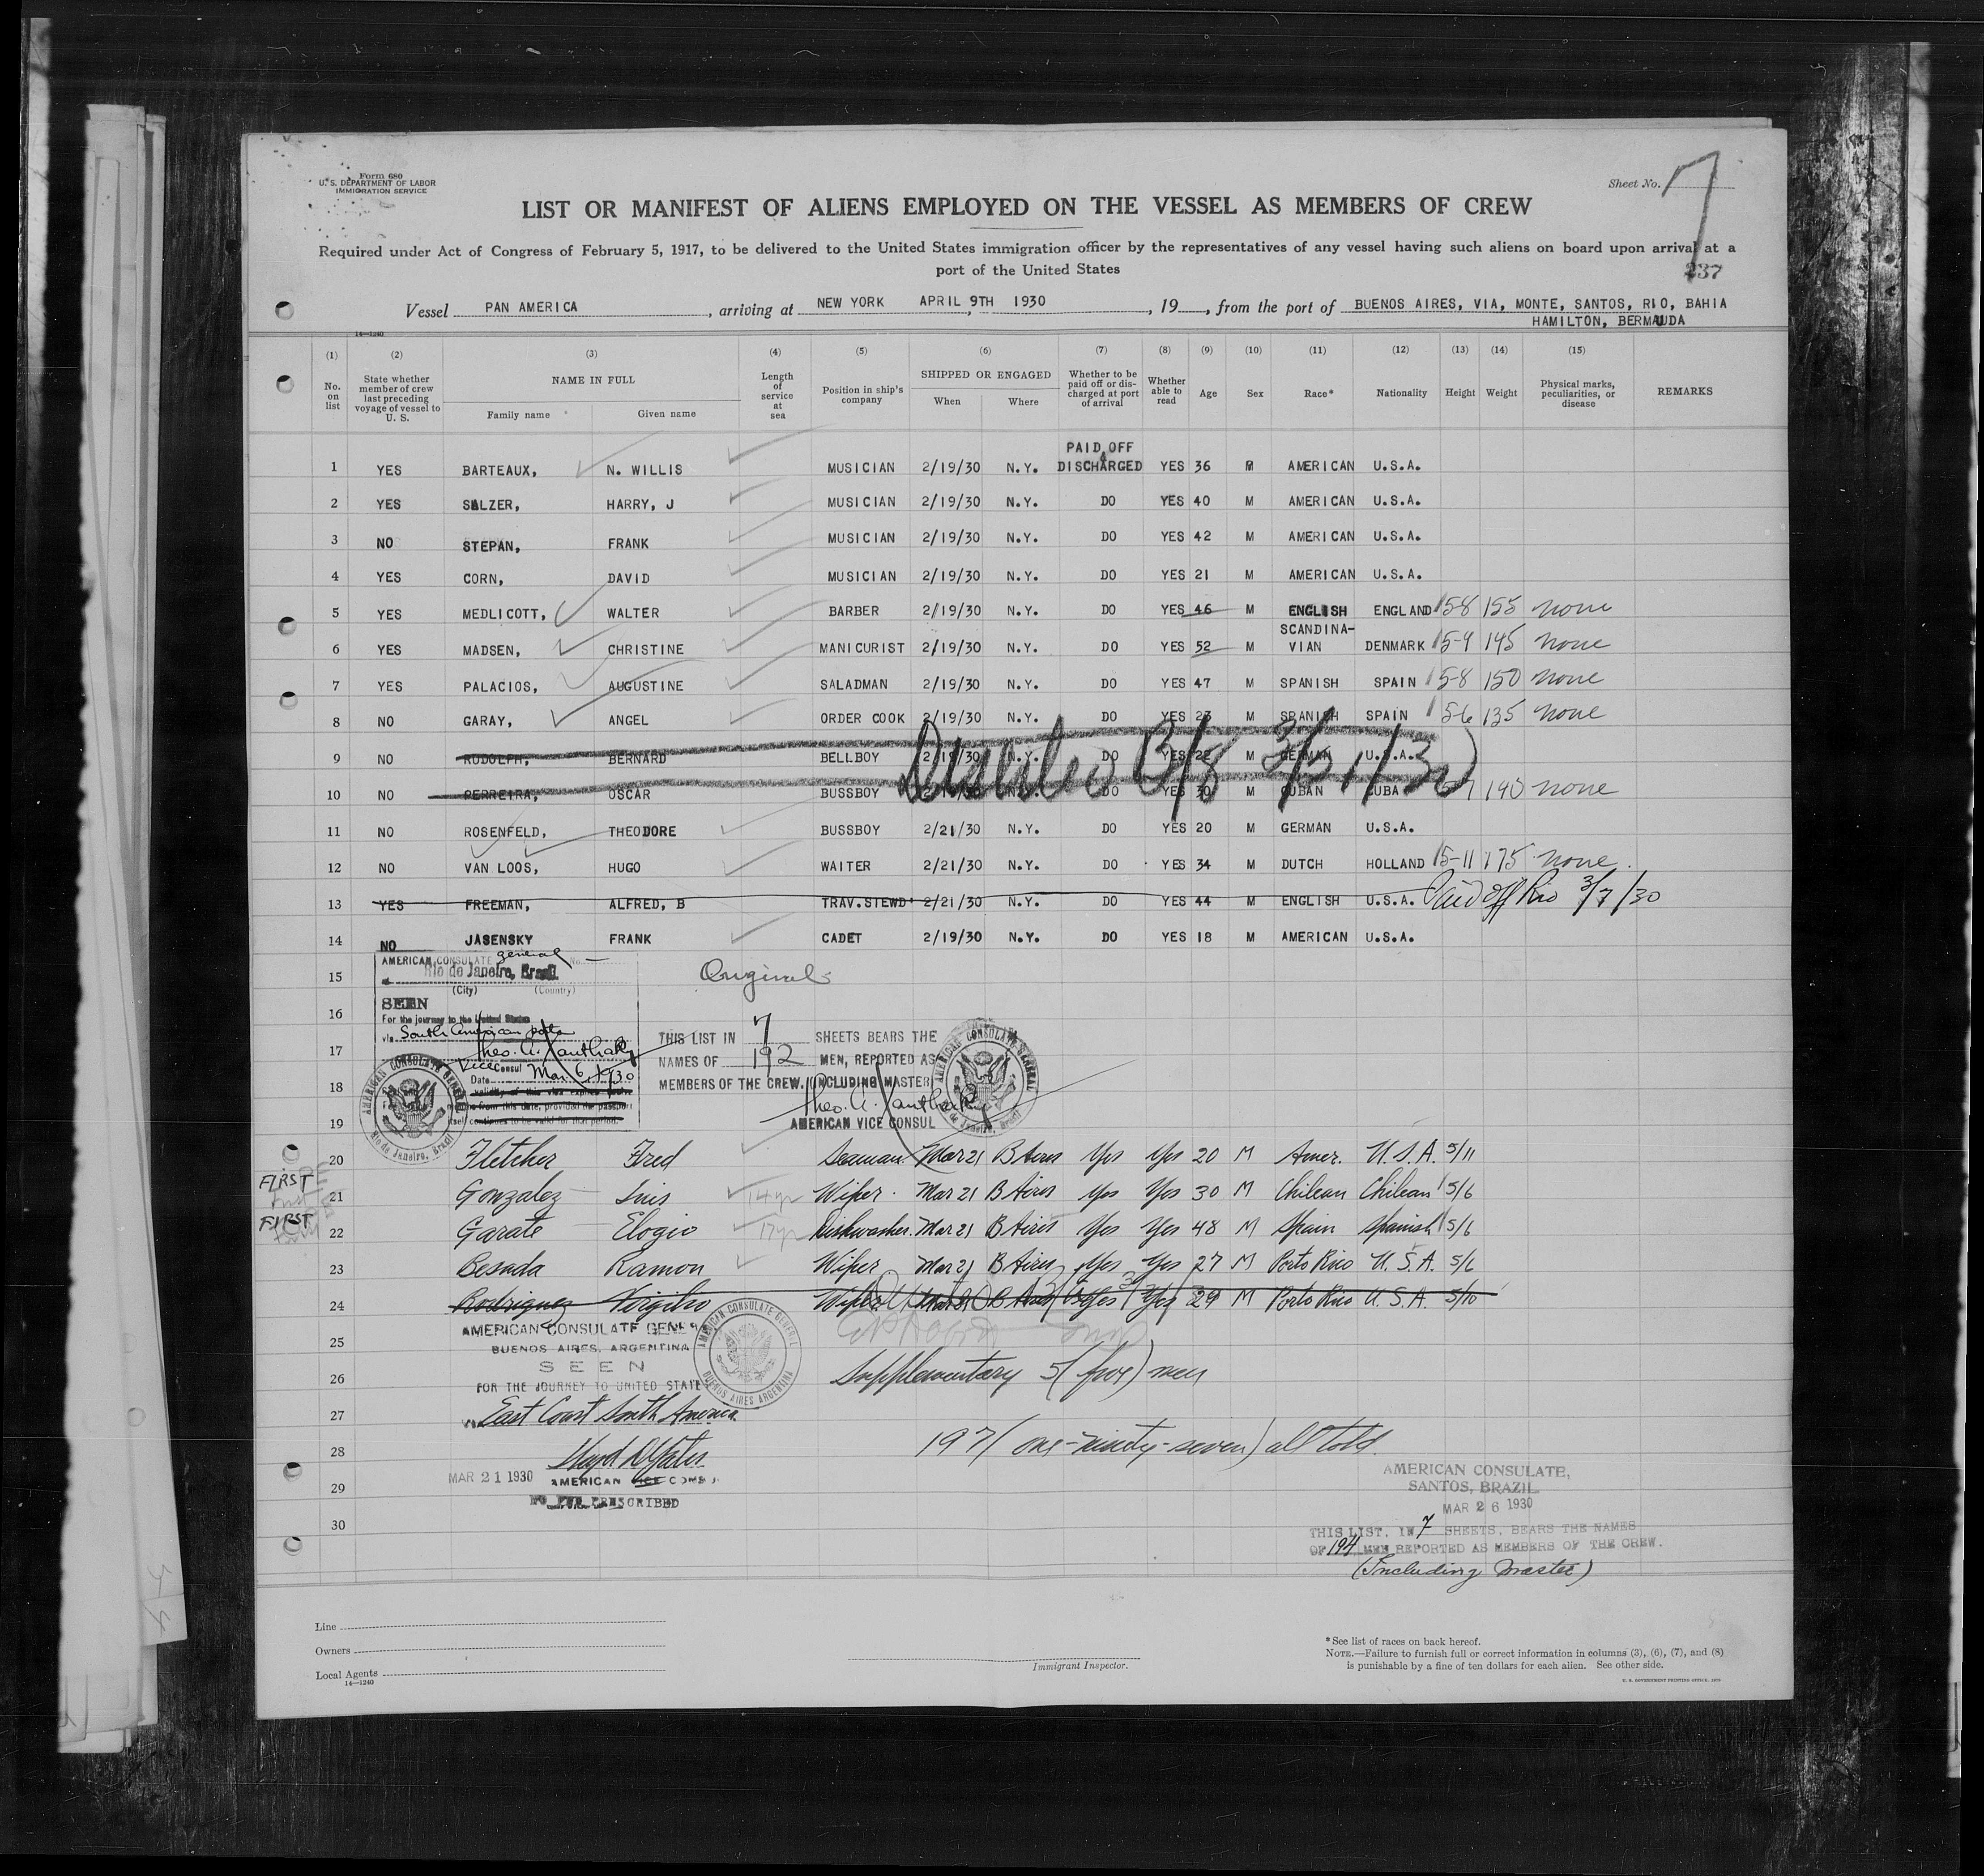 Form 680
U. S. DEPARTMENT OF LABOR
IMMIGRATION SERVICE
Sheet No. 7
LIST OR MANIFEST OF ALIENS EMPLOYED ON THE VESSEL AS MEMBERS OF CREW
Required under Act of Congress of February 5, 1917, to be delivered to the United States immigration officer by the representatives of any vessel having such aliens on board upon arrival at a
port of the United States
237
Vessel PAN AMERICA, arriving at NEW YORK APRIL 9TH 1930, 19, from the port of BUENOS AIRES, VIA, MONTE, SANTOS, RIO, BAHIA
HAMILTON, BERMUDA
14—1240
(1) (2) (3) (4) (5) (6) (7) (8) (9) (10) (11) (12) (13) (14) (15)
No. on list
State whether member of crew last preceding voyage of vessel to U. S.
NAME IN FULL
Family name
Given name
Length of service at sea
Position in ship's company
SHIPPED OR ENGAGED
When
Where
Whether to be paid off or discharged at port of arrival
Whether able to read
Age
Sex
Race*
Nationality
Height
Weight
Physical marks, peculiarities, or disease
REMARKS
PAID OFF &
1 YES BARTEAUX, N. WILLIS MUSICIAN 2/19/30 N.Y. DISCHARGED YES 36 M AMERICAN U.S.A.
2 YES SALZER, HARRY, J MUSICIAN 2/19/30 N.Y. DO YES 40 M AMERICAN U.S.A.
3 NO STEPAN, FRANK MUSICIAN 2/19/30 N.Y. DO YES 42 M AMERICAN U.S.A.
4 YES CORN, DAVID MUSICIAN 2/19/30 N.Y. DO YES 21 M AMERICAN U.S.A.
5 YES MEDLICOTT, WALTER BARBER 2/19/30 N.Y. DO YES 46 M ENGLISH ENGLAND 5-8 155 none
SCANDINA-
6 YES MADSEN, CHRISTINE MANICURIST 2/19/30 N.Y. DO YES 52 M VIAN DENMARK 5-9 145 none
7 YES PALACIOS, AUGUSTINE SALADMAN 2/19/30 N.Y. DO YES 47 M SPANISH SPAIN 5-8 150 none
8 NO GARAY, ANGEL ORDER COOK 2/19/30 N.Y. DO YES 23 M SPANISH SPAIN 5-6 135 none
9 NO RUDOLPH, BERNARD BELLBOY 2/19/30 N.Y. DO YES 22 M GERMAN U.S.A.
10 NO PERREIRA, OSCAR BUSSBOY DO YES 30 M CUBAN CUBA 140 none
11 NO ROSENFELD, THEODORE BUSSBOY 2/21/30 N.Y. DO YES 20 M GERMAN U.S.A.
12 NO VAN LOOS, HUGO WAITER 2/21/30 N.Y. DO YES 34 M DUTCH HOLLAND 5-11 175 none.
13 YES FREEMAN, ALFRED, B TRAV. STEWD 2/21/30 N.Y. DO YES 44 M ENGLISH U.S.A. Paid off Rio 3/7/30
14 NO JASENSKY FRANK CADET 2/19/30 N.Y. DO YES 18 M AMERICAN U.S.A.
AMERICAN CONSULATE general No.
15 Rio de Janeiro, Brasil.
Original
(City) (Country)
SEEN
16 For the journey to the United States
via South American ports
17 Theo. A. Xanthaky
Vice Consul
18 Date Mar. 6, 1930
validity of this visa expires
from this date, provided the passport
19 itself continues to be valid for that period.
AMERICAN CONSULATE GENERAL Rio de Janeiro, Brazil
THIS LIST IN 7 SHEETS BEARS THE
NAMES OF 192 MEN, REPORTED AS
MEMBERS OF THE CREW, INCLUDING MASTER
Theo. A. Xanthaky
AMERICAN VICE CONSUL
AMERICAN CONSULATE GENERAL Rio de Janeiro, Brazil
20 Fletcher Fred Seaman Mar 21 B Aires Yes Yes 20 M Amer. U.S.A. 5/11
FIRST 21 Gonzalez Luis 14 yr Wiper Mar 21 B Aires Yes Yes 30 M Chilean Chilean 5/6
FIRST 22 Garate Elogio 17 yr Dishwasher Mar 21 B Aires Yes Yes 48 M Spain Spanish 5/6
23 Besada Ramon Wiper Mar 21 B Aires Yes Yes 27 M Porto Rico U.S.A. 5/6
24 Rodriguez Virgilio Wiper Mar 21 B Aires Yes Yes 29 M Porto Rico U.S.A. 5/10
AMERICAN CONSULATE GENERAL
25 BUENOS AIRES, ARGENTINA
SEEN
26 FOR THE JOURNEY TO UNITED STATES
AMERICAN CONSULATE GENERAL BUENOS AIRES ARGENTINA
Supplementary 5 (five) men
27 via East Coast South America
28 197 (one-ninety-seven) all told.
MAR 21 1930 AMERICAN VICE CONSUL
29 NO FEE PRESCRIBED
30
AMERICAN CONSULATE,
SANTOS, BRAZIL
MAR 26 1930
THIS LIST, IN 7 SHEETS, BEARS THE NAMES
OF 194 MEN REPORTED AS MEMBERS OF THE CREW.
(Including Master)
Line
Owners
Local Agents
14—1240
Immigrant Inspector.
*See list of races on back hereof.
NOTE.—Failure to furnish full or correct information in columns (3), (6), (7), and (8)
is punishable by a fine of ten dollars for each alien. See other side.